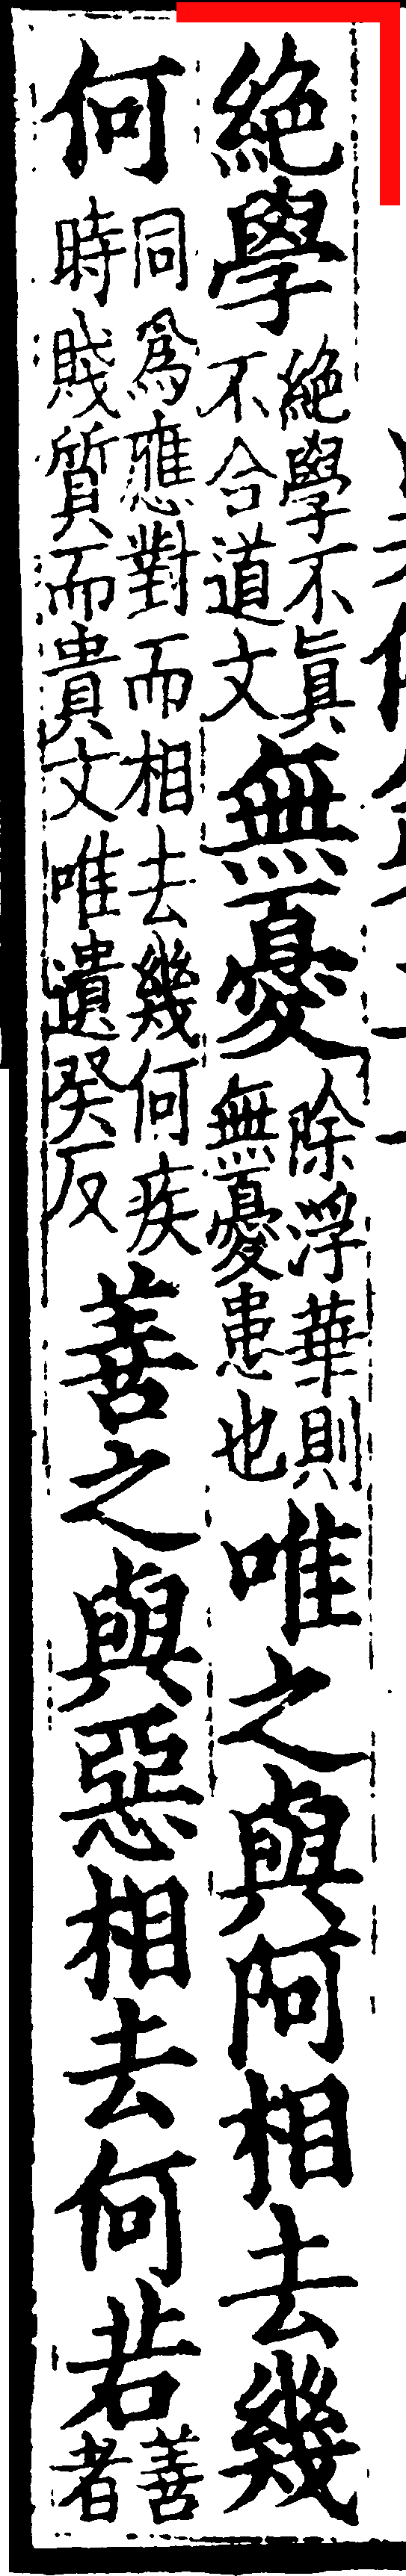 絶學絶學不眞不合道文無憂除浮華則無憂患也唯之與阿相去幾
何同爲應對而相去幾何疾時賤質而貴文唯遺癸反善之與惡相去何若善者